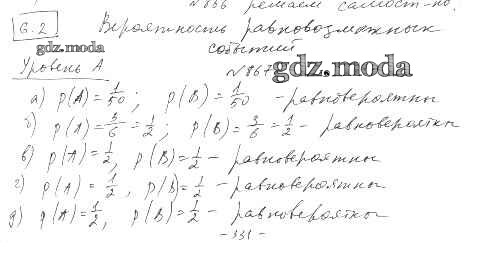 №866 решаем самост-но.
6.2 Вероятность равновозможных
gdz.moda событий
Уровень А. №867 gdz.moda
а) p(A) = 1/50; p(B) = 1/50 - равновероятны
б) p(A) = 3/6 = 1/2; p(B) = 3/6 = 1/2 - равновероятны
в) p(A) = 1/2, p(B) = 1/2 - равновероятны
г) p(A) = 1/2, p(B) = 1/2 - равновероятны
д) p(A) = 1/2, p(B) = 1/2 - равновероятны
- 331 -